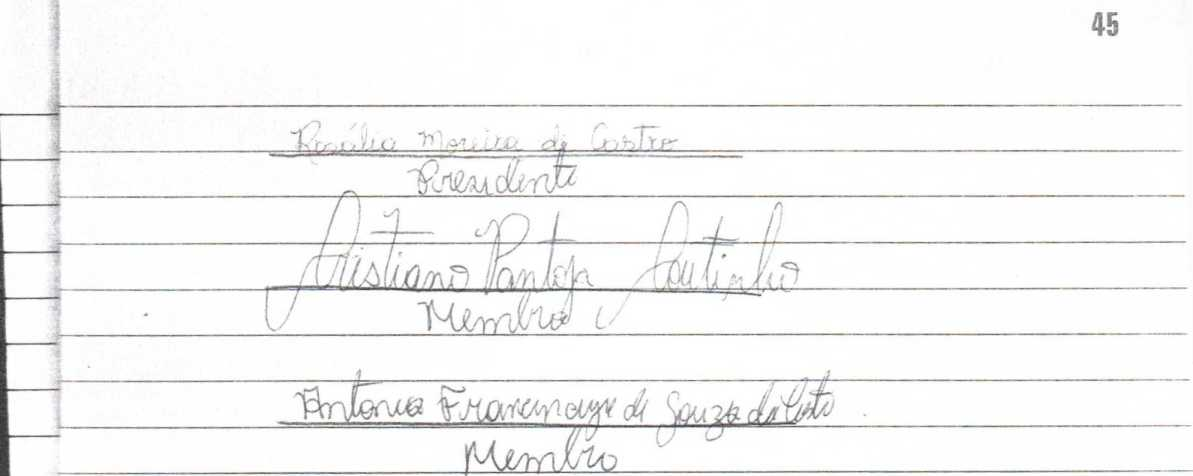 45
Rosália Moreira de Castro
Presidente
Cristiano Pantoja Coutinho
Membro
Antonia Francinayre de Souza da Costa
Membro